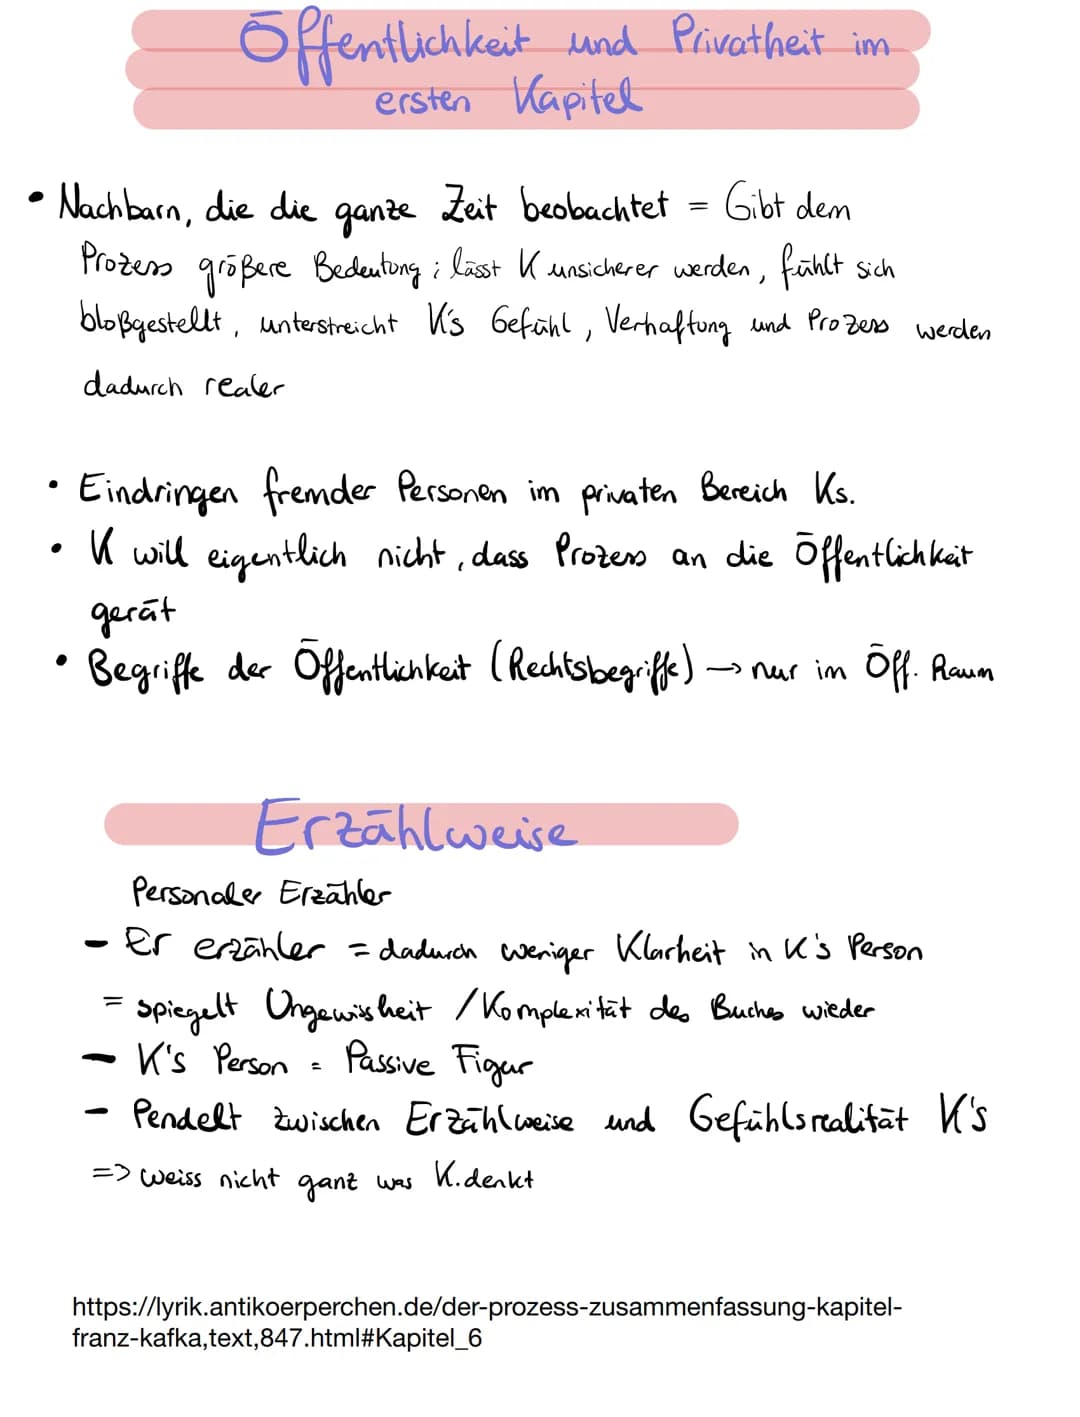 Öffentlichkeit und Privatheit im
ersten Kapitel
• Nachbarn, die die ganze Zeit beobachtet = Gibt dem
Prozess größere Bedeutung ; lässt K unsicherer werden, fühlt sich
bloßgestellt, unterstreicht K's Gefühl, Verhaftung und Prozess werden
dadurch realer
• Eindringen fremder Personen im privaten Bereich Ks.
• K will eigentlich nicht, dass Prozess an die Öffentlichkeit
gerät
• Begriffe der Öffentlichkeit (Rechtsbegriffe) → nur im Öff. Raum
Erzählweise
Personaler Erzähler
- Er erzähler = dadurch weniger Klarheit in K's Person
= spiegelt Ungewissheit / Komplexität des Buches wieder
- K's Person = Passive Figur
- Pendelt zwischen Erzählweise und Gefühlsrealität K's
=> weiss nicht ganz was K. denkt
https://lyrik.antikoerperchen.de/der-prozess-zusammenfassung-kapitel-
franz-kafka,text,847.html#Kapitel_6